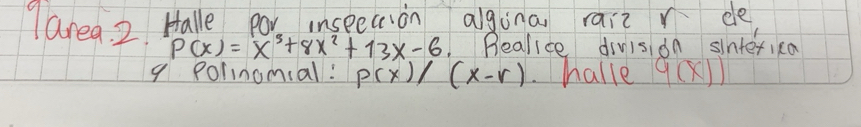 Tarea.2. Halle por inspección alguna raíz r de,
P(x) = x³+8x²+13x-6. Realice división sintética
y Polinomial: p(x)/(x-r). halle q(x))